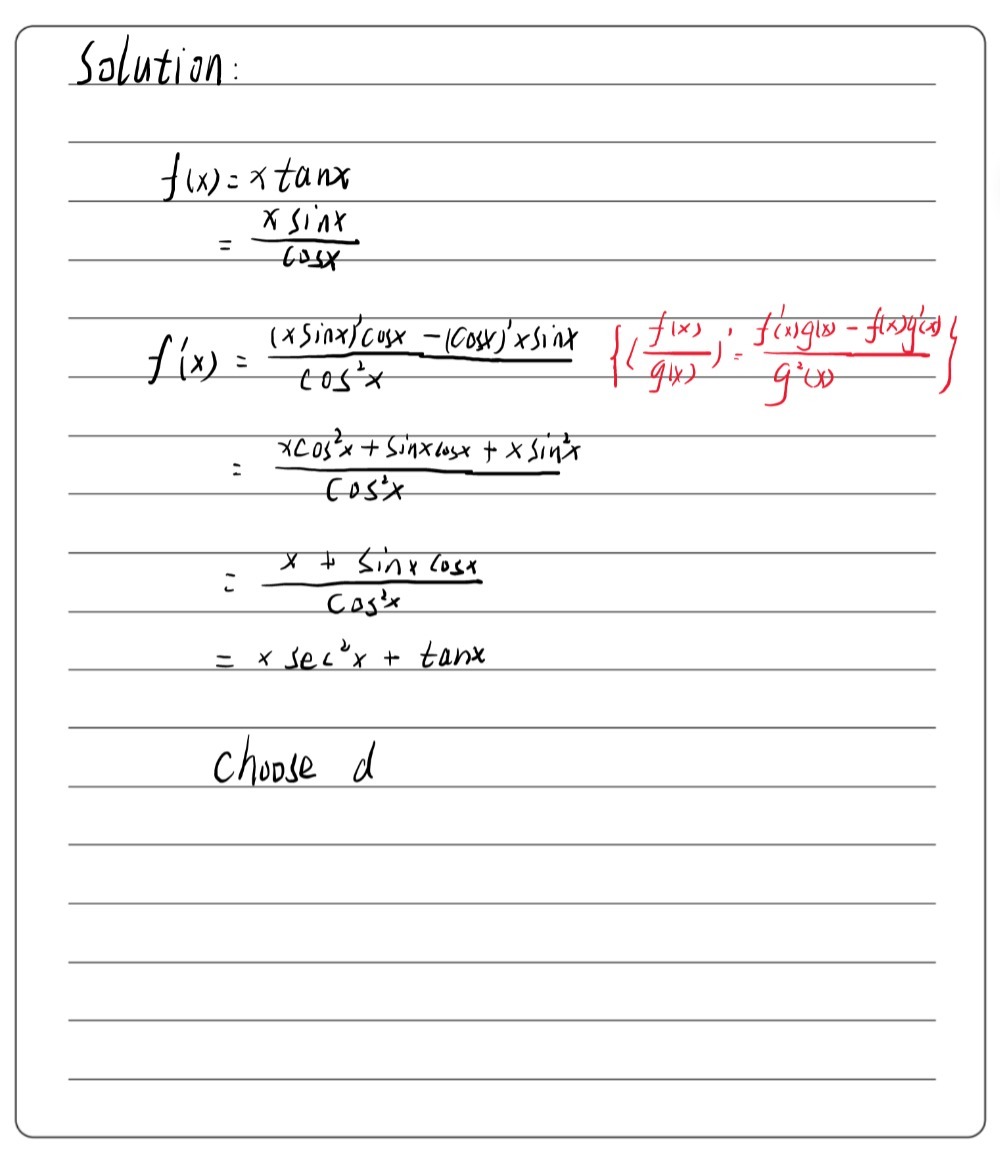 Solution:
f(x) = x tanx
= x sinx / cosx
f'(x) = (x sinx)'cosx - (cosx)'x sinx / cos²x {(f(x) / g(x))' = f'(x)g(x) - f(x)g'(x) / g²(x)}
= xcos²x + sinxcosx + x sin²x / cos²x
= x + sinx cosx / cos²x
= x sec²x + tanx
choose d